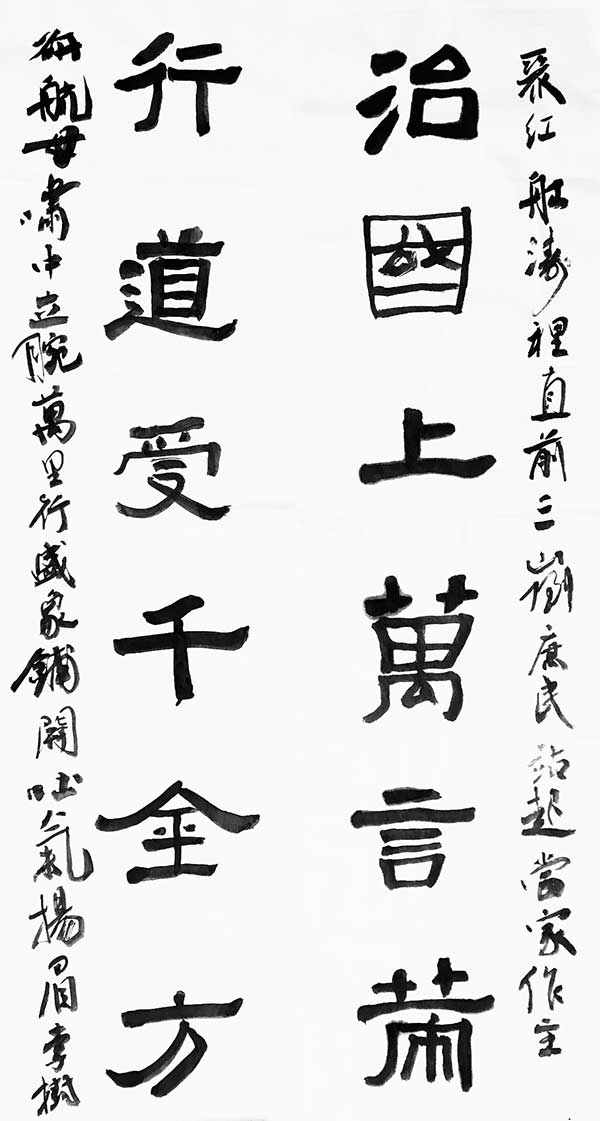 紅船濤裡直前三庶民站起當家作主
治國上萬言策
行道受千金方
航母嘯中立腕萬里行盛象鋪開吐氣揚眉李樹